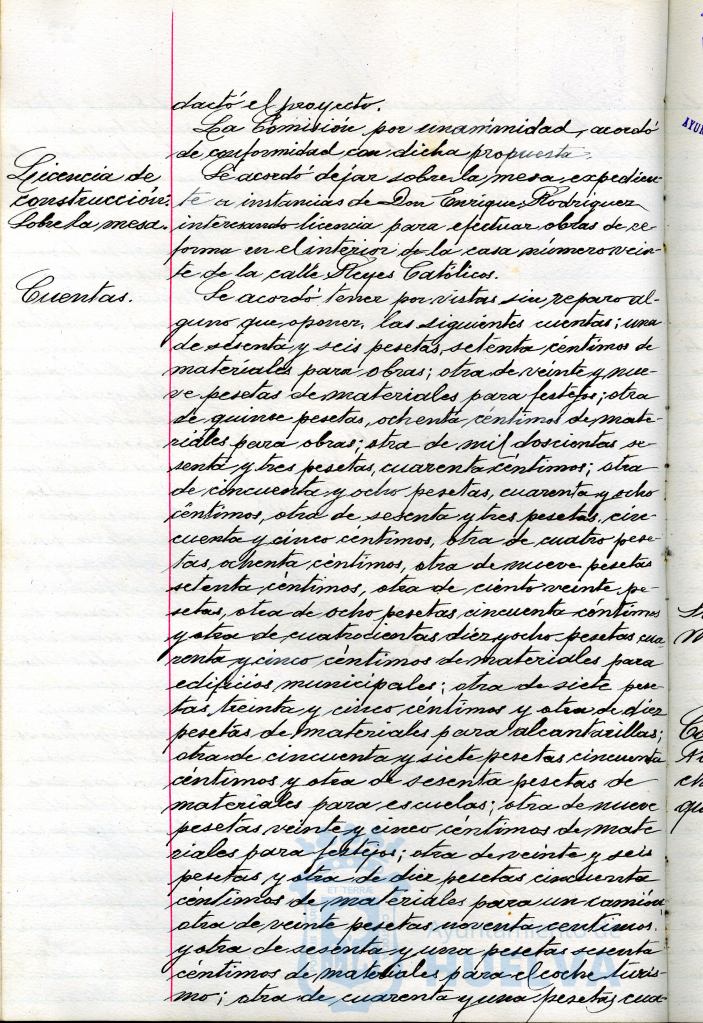 dactó el proyecto.
La Comisión por unaminidad, acordó
de conformidad con dicha propuesta.
Licencia de
construcción:
Sobre la mesa.
Se acordó dejar sobre la mesa expedien-
te a instancias de Don Enrique Rodríguez
interesando licencia para efectuar obras de re-
forma en el interior de la casa número vein-
te de la calle Reyes Católicos.
Cuentas.
Se acordó tener por vistas sin reparo al-
guno que oponer, las siguientes cuentas; una
de sesenta y seis pesetas, setenta céntimos de
materiales para obras; otra de veinte y nue-
ve pesetas de materiales para festejos; otra
de quince pesetas, ochenta céntimos de mate-
riales para obras; otra de mil doscientas se-
senta y tres pesetas, cuarenta céntimos; otra
de cincuenta y ocho pesetas, cuarenta y ocho
céntimos, otra de sesenta y tres pesetas, cin-
cuenta y cinco céntimos, otra de cuatro pese-
tas, ochenta céntimos, otra de nueve pesetas
setenta céntimos, otra de ciento veinte pe-
setas, otra de ocho pesetas cincuenta céntimos
y otra de cuatrocientas diez y ocho pesetas cua-
renta y cinco céntimos de materiales para
edificios municipales; otra de siete pese-
tas treinta y cinco céntimos y otra de diez
pesetas de materiales para alcantarillas;
otra de cincuenta y siete pesetas cincuenta
céntimos y otra de sesenta pesetas de
materiales para escuelas; otra de nueve
pesetas veinte y cinco céntimos de mate-
riales para festejos; otra de veinte y seis
pesetas y otra de diez pesetas cincuenta
céntimos de materiales para un camión
otra de veinte pesetas noventa centimos.
y otra de sesenta y una pesetas sesenta
céntimos de materiales para el coche turis-
mo; otra de cuarenta y una pesetas cua-
ET TERRÆ
Ayuntamiento de
HUELVA